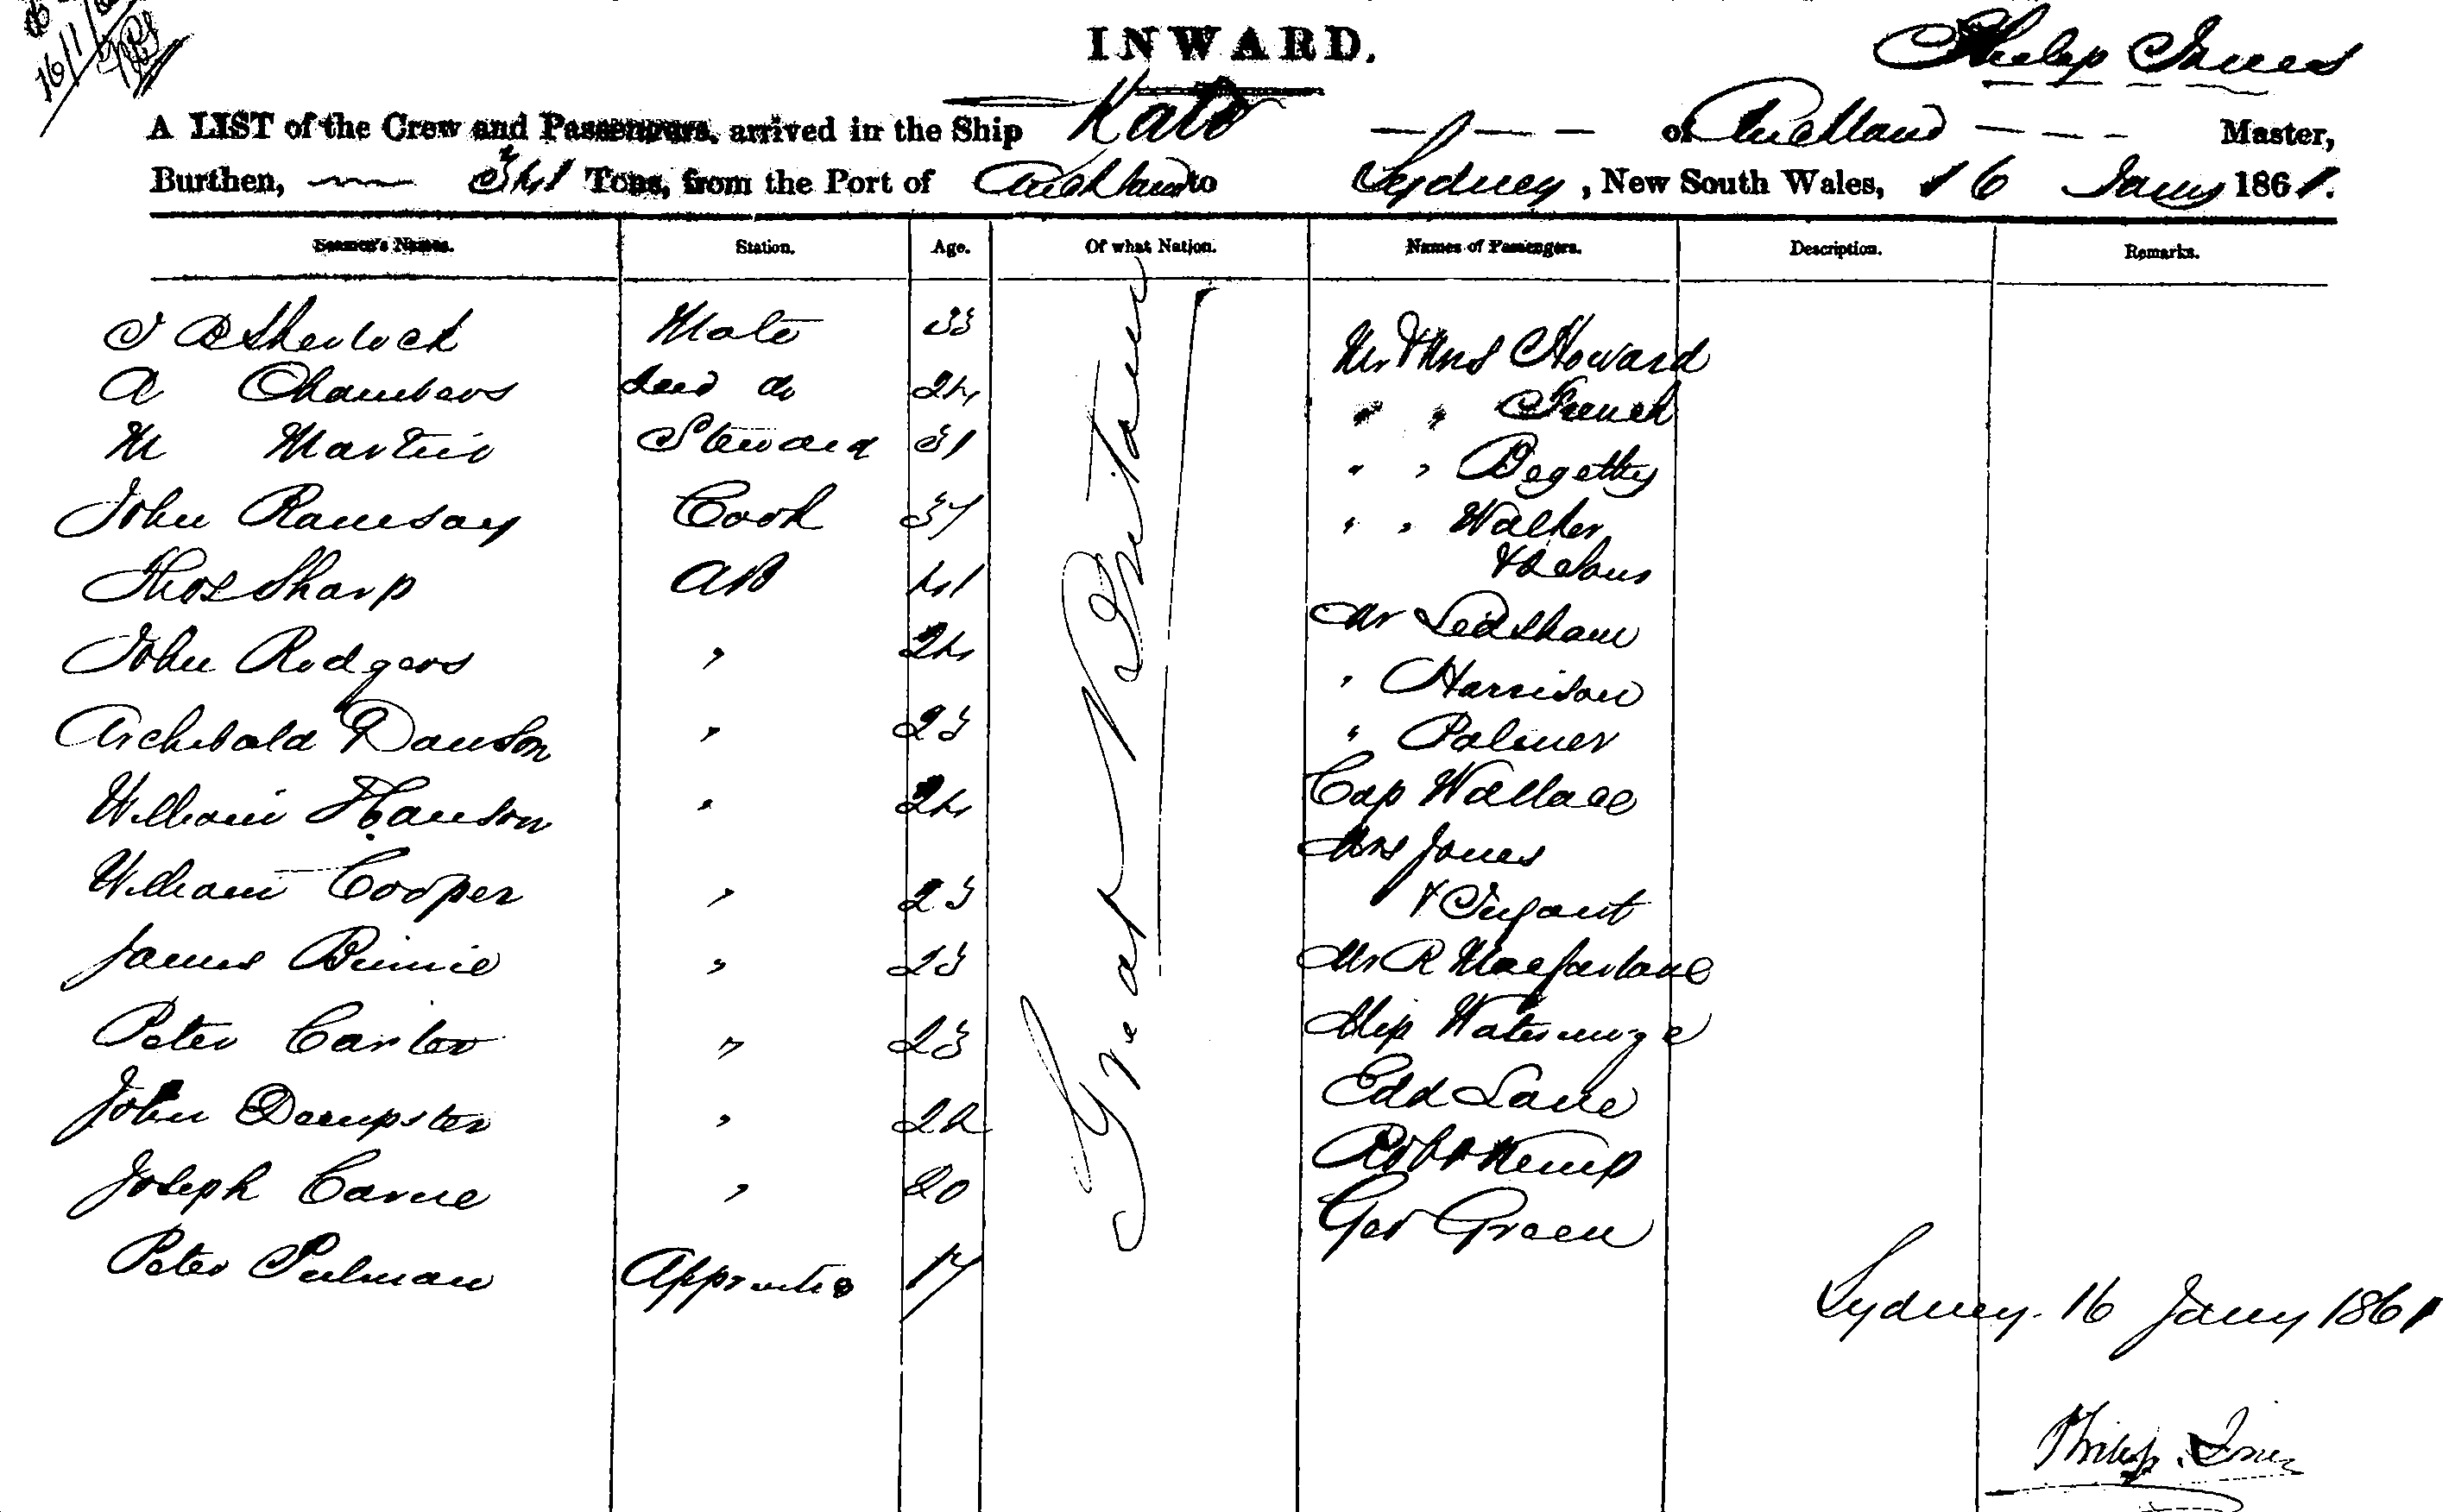 16/1/
INWARD.
Philip Jones
A LIST of the Crew and Passengers, arrived in the Ship Kate of Auckland Master,
Burthen, 341 Tons, from the Port of Auckland to Sydney, New South Wales, 16 Jany 1861.
Seamen's Names. Station. Age. Of what Nation. Names of Passengers. Description. Remarks.
J B Sherlock Mate 33 Mr & Mrs Howard
A Chambers Second do 24 " " French
M Martin Steward 31 " " Begetty
John Ramsay Cook 37 " " Walker
Thos Sharp AB 41 & 2 Sons
John Rodgers " 24 Mr Ledsham
Archibald Dawson " 23 " Harrison
William Hanson " 24 " Palmer
William Cooper " 23 Cap Wallace
James Binnie " 23 Mrs Jones
Peter Carter " 23 & Infant
John Dempster " 22 Mr R Macfarlane
Joseph Carne " 20 Miss
Peter Pulman Apprentice 17 Edd Lane
Robt Kemp
Geo Green
Great Britain
Sydney. 16 Jany 1861
Philip Jones